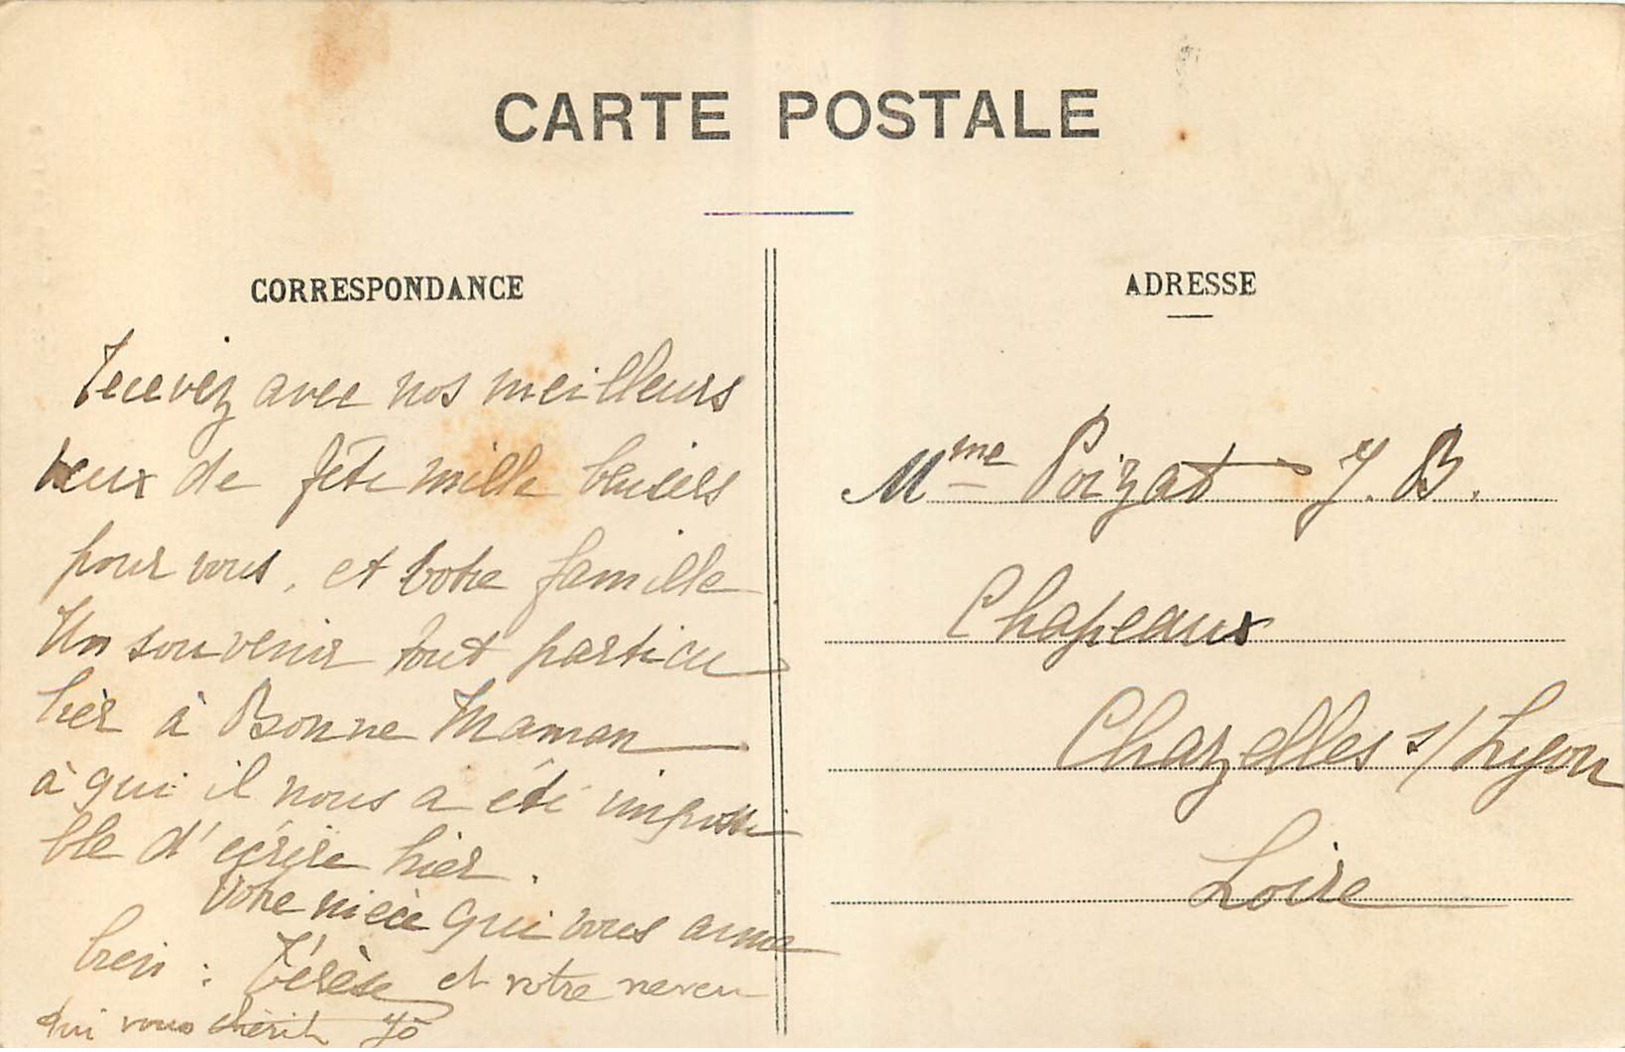 CARTE POSTALE
CORRESPONDANCE
Recevez avec nos meilleurs
veux de fête mille baisers
pour vous, et votre famille
Un souvenir tout particu
lier à Bonne Maman
à qui il nous a été impossi
ble d'écrire hier.
Votre nièce qui vous aime
bien : Térèse et votre neveu
qui vous chérit Jo
ADRESSE
Mme Poizat J. B.
Chapeaux
Chazelles s/ Lyon
Loire